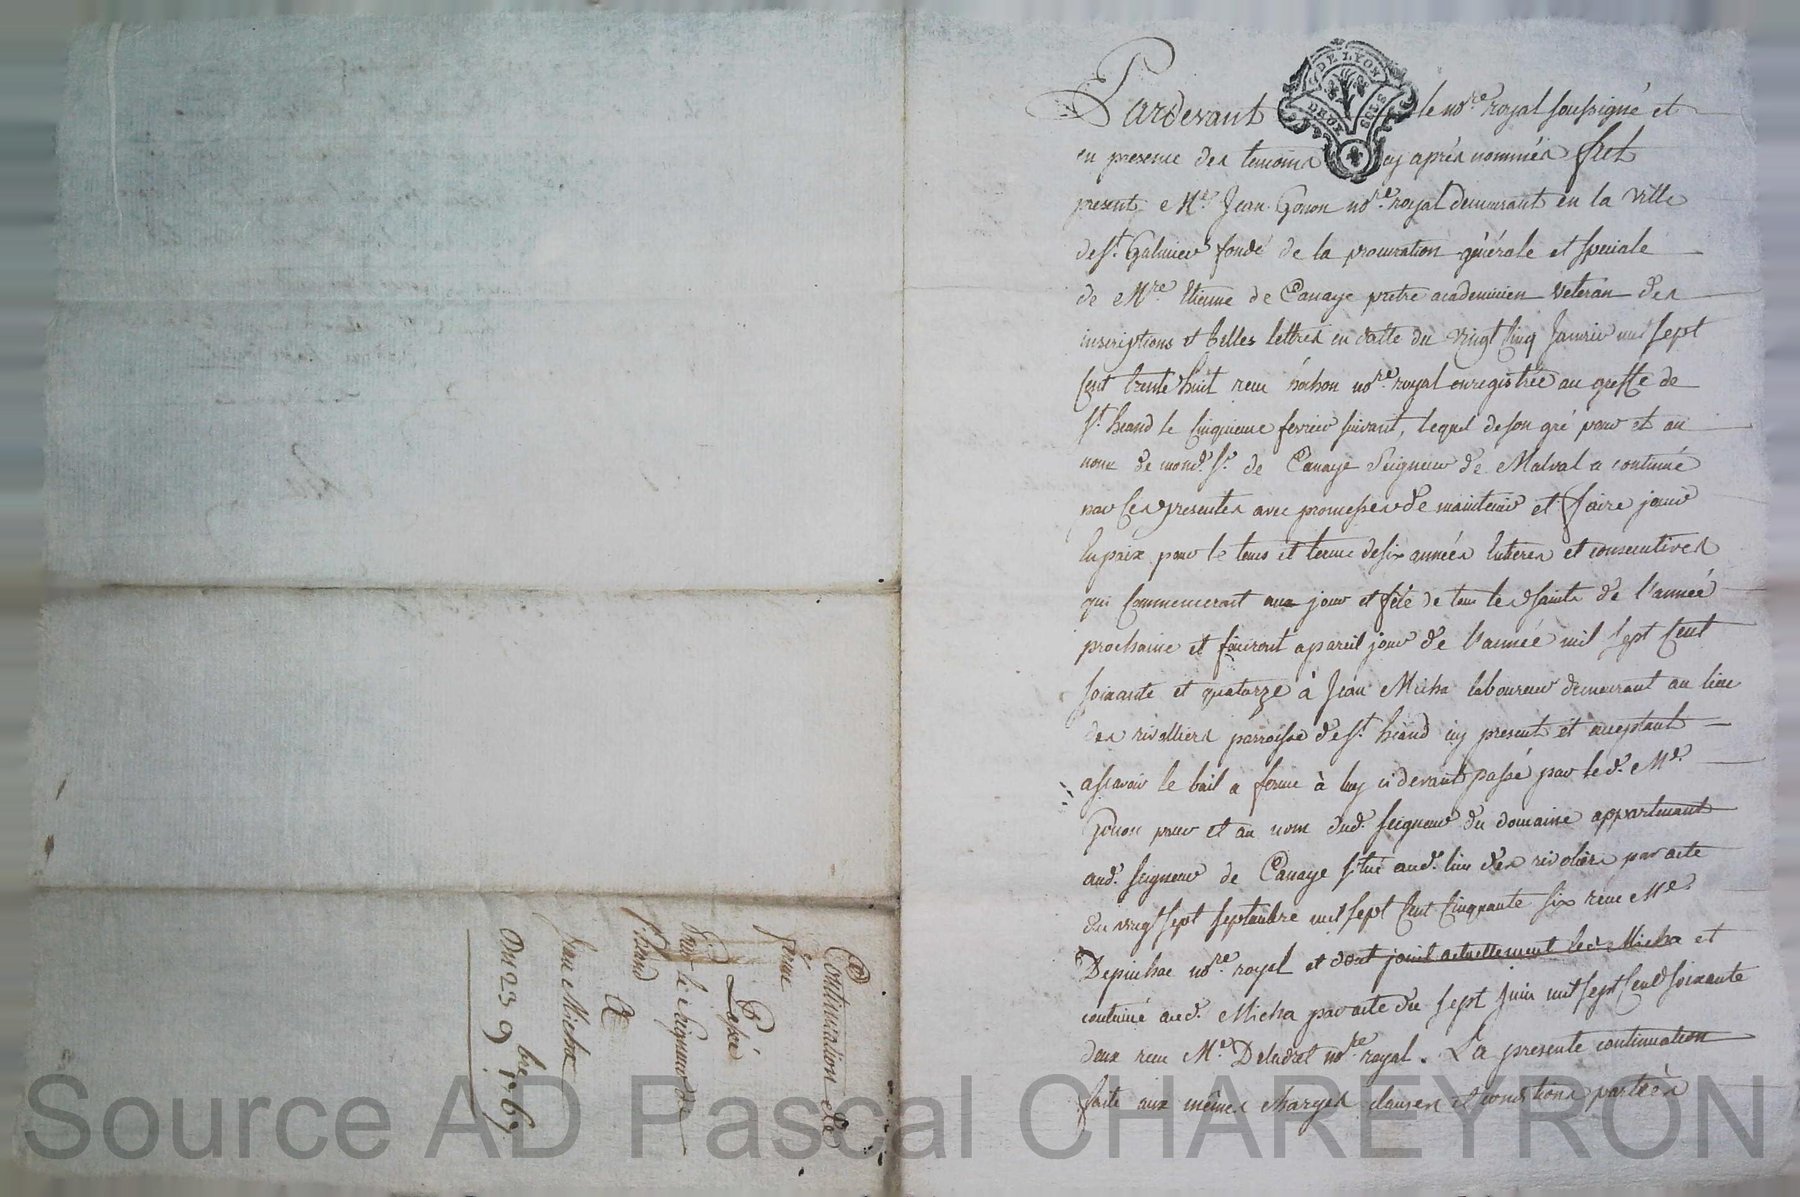 Pardevant le no.re royal soussigné et
en presence des temoins cy aprés nommés fut
present Me. Jean Gonon no.re royal demeurant en la ville
de St. Galmier fondé de la procuration générale et speciale
de Mre. Etienne de Canaye pretre academicien veteran des
inscriptions et belles lettres en datte du vingt cinq Janvier mil sept
cent trente huit recu no.re royal enregistrée au greffe de
St. heand le cinquieme fevrier suivant, lequel de son gré pour et au
nom de mond. Sr. de Canaye Seigneur de Malval a continué
par ces presentes avec promesses de maintenir et faire jouir
en paix pour le tems et terme de six années entieres et consecutives
qui commenceront aux jour et féte de tous les saints de l'année
prochaine et finiront a pareil jour de l'année mil sept cent
soixante et quatorze à Jean Micha laboureur demeurant au lieu
des rivolliers parroisse de St. heand icy present et acceptant
ascavoir le bail a ferme à luy ci devant passé par led. Me.
Gonon pour et au nom dud. seigneur du domaine appartenant
aud. seigneur de Canaye situé aud. lieu des rivoliers par acte
du vingt sept septembre mil sept cent cinquante six recu Me.
Depinhac no.re royal et dont jouit actuellement led. Micha et
continué aud. Micha par acte du sept juin mil sept cent soixante
deux recu Me. no.re royal. La presente continuation
faite aux mêmes charges clauses et conditions portées
Continuation de
ferme
Passée
Par le Seigneur de
St. heand
A
Jean Micha
Du 23 9bre 1767
DE LYON
DEUX SOLS
Source AD Pascal CHAREYRON